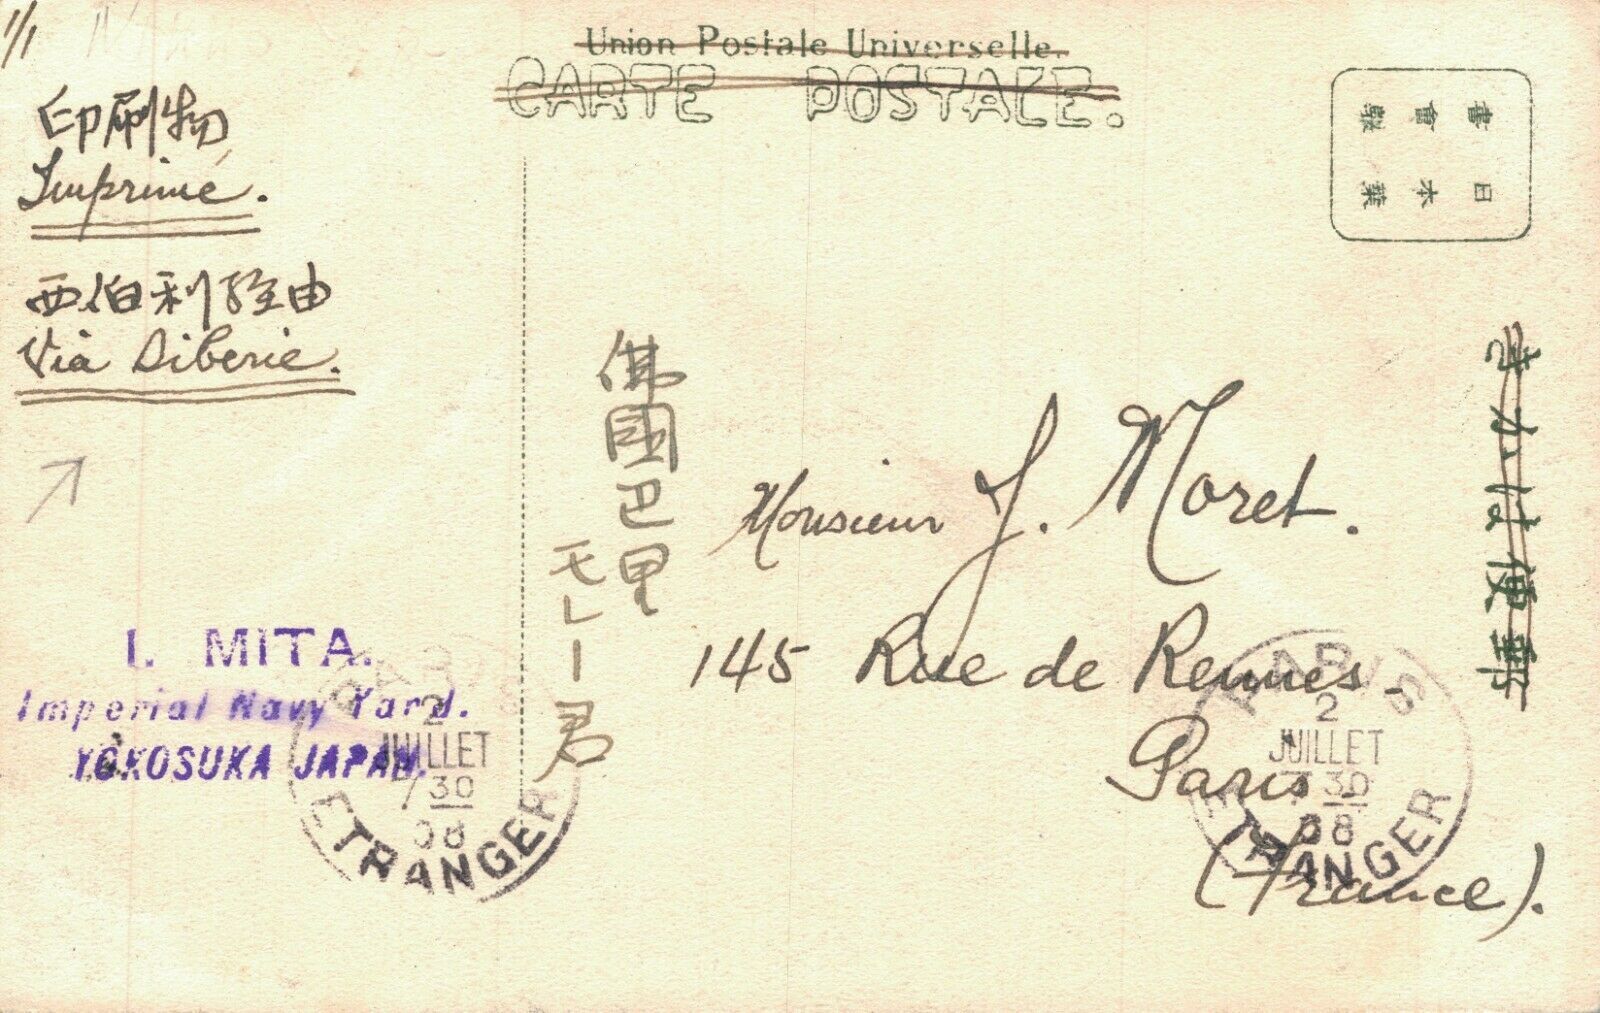 1/1
Union Postale Universelle.
CARTE POSTALE.
印刷物
Imprimé.
西伯利経由
Via Siberie.
日本葉書會報
きかは便郵
佛國巴里
モレー君
Monsieur J. Moret.
145 Rue de Rennes.
Paris.
(France).
I. MITA.
Imperial Navy Yard.
YOKOSUKA JAPAN.
PARIS
2
JUILLET
7 30
08
ETRANGER
PARIS
2
JUILLET
7 30
08
ETRANGER